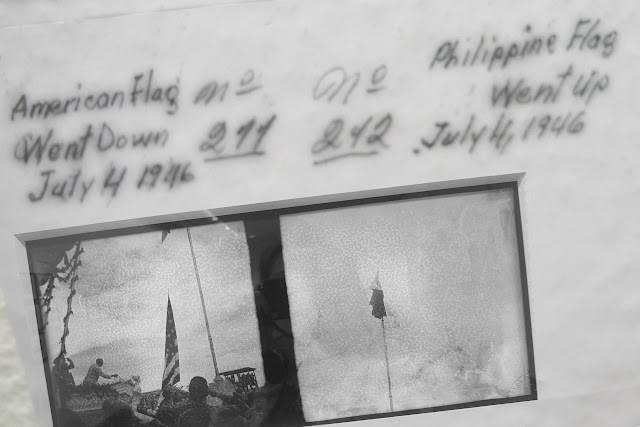 American Flag
Went Down
July 4 1946
Nº
241
Nº
242
Philippine Flag
Went Up
July 4, 1946